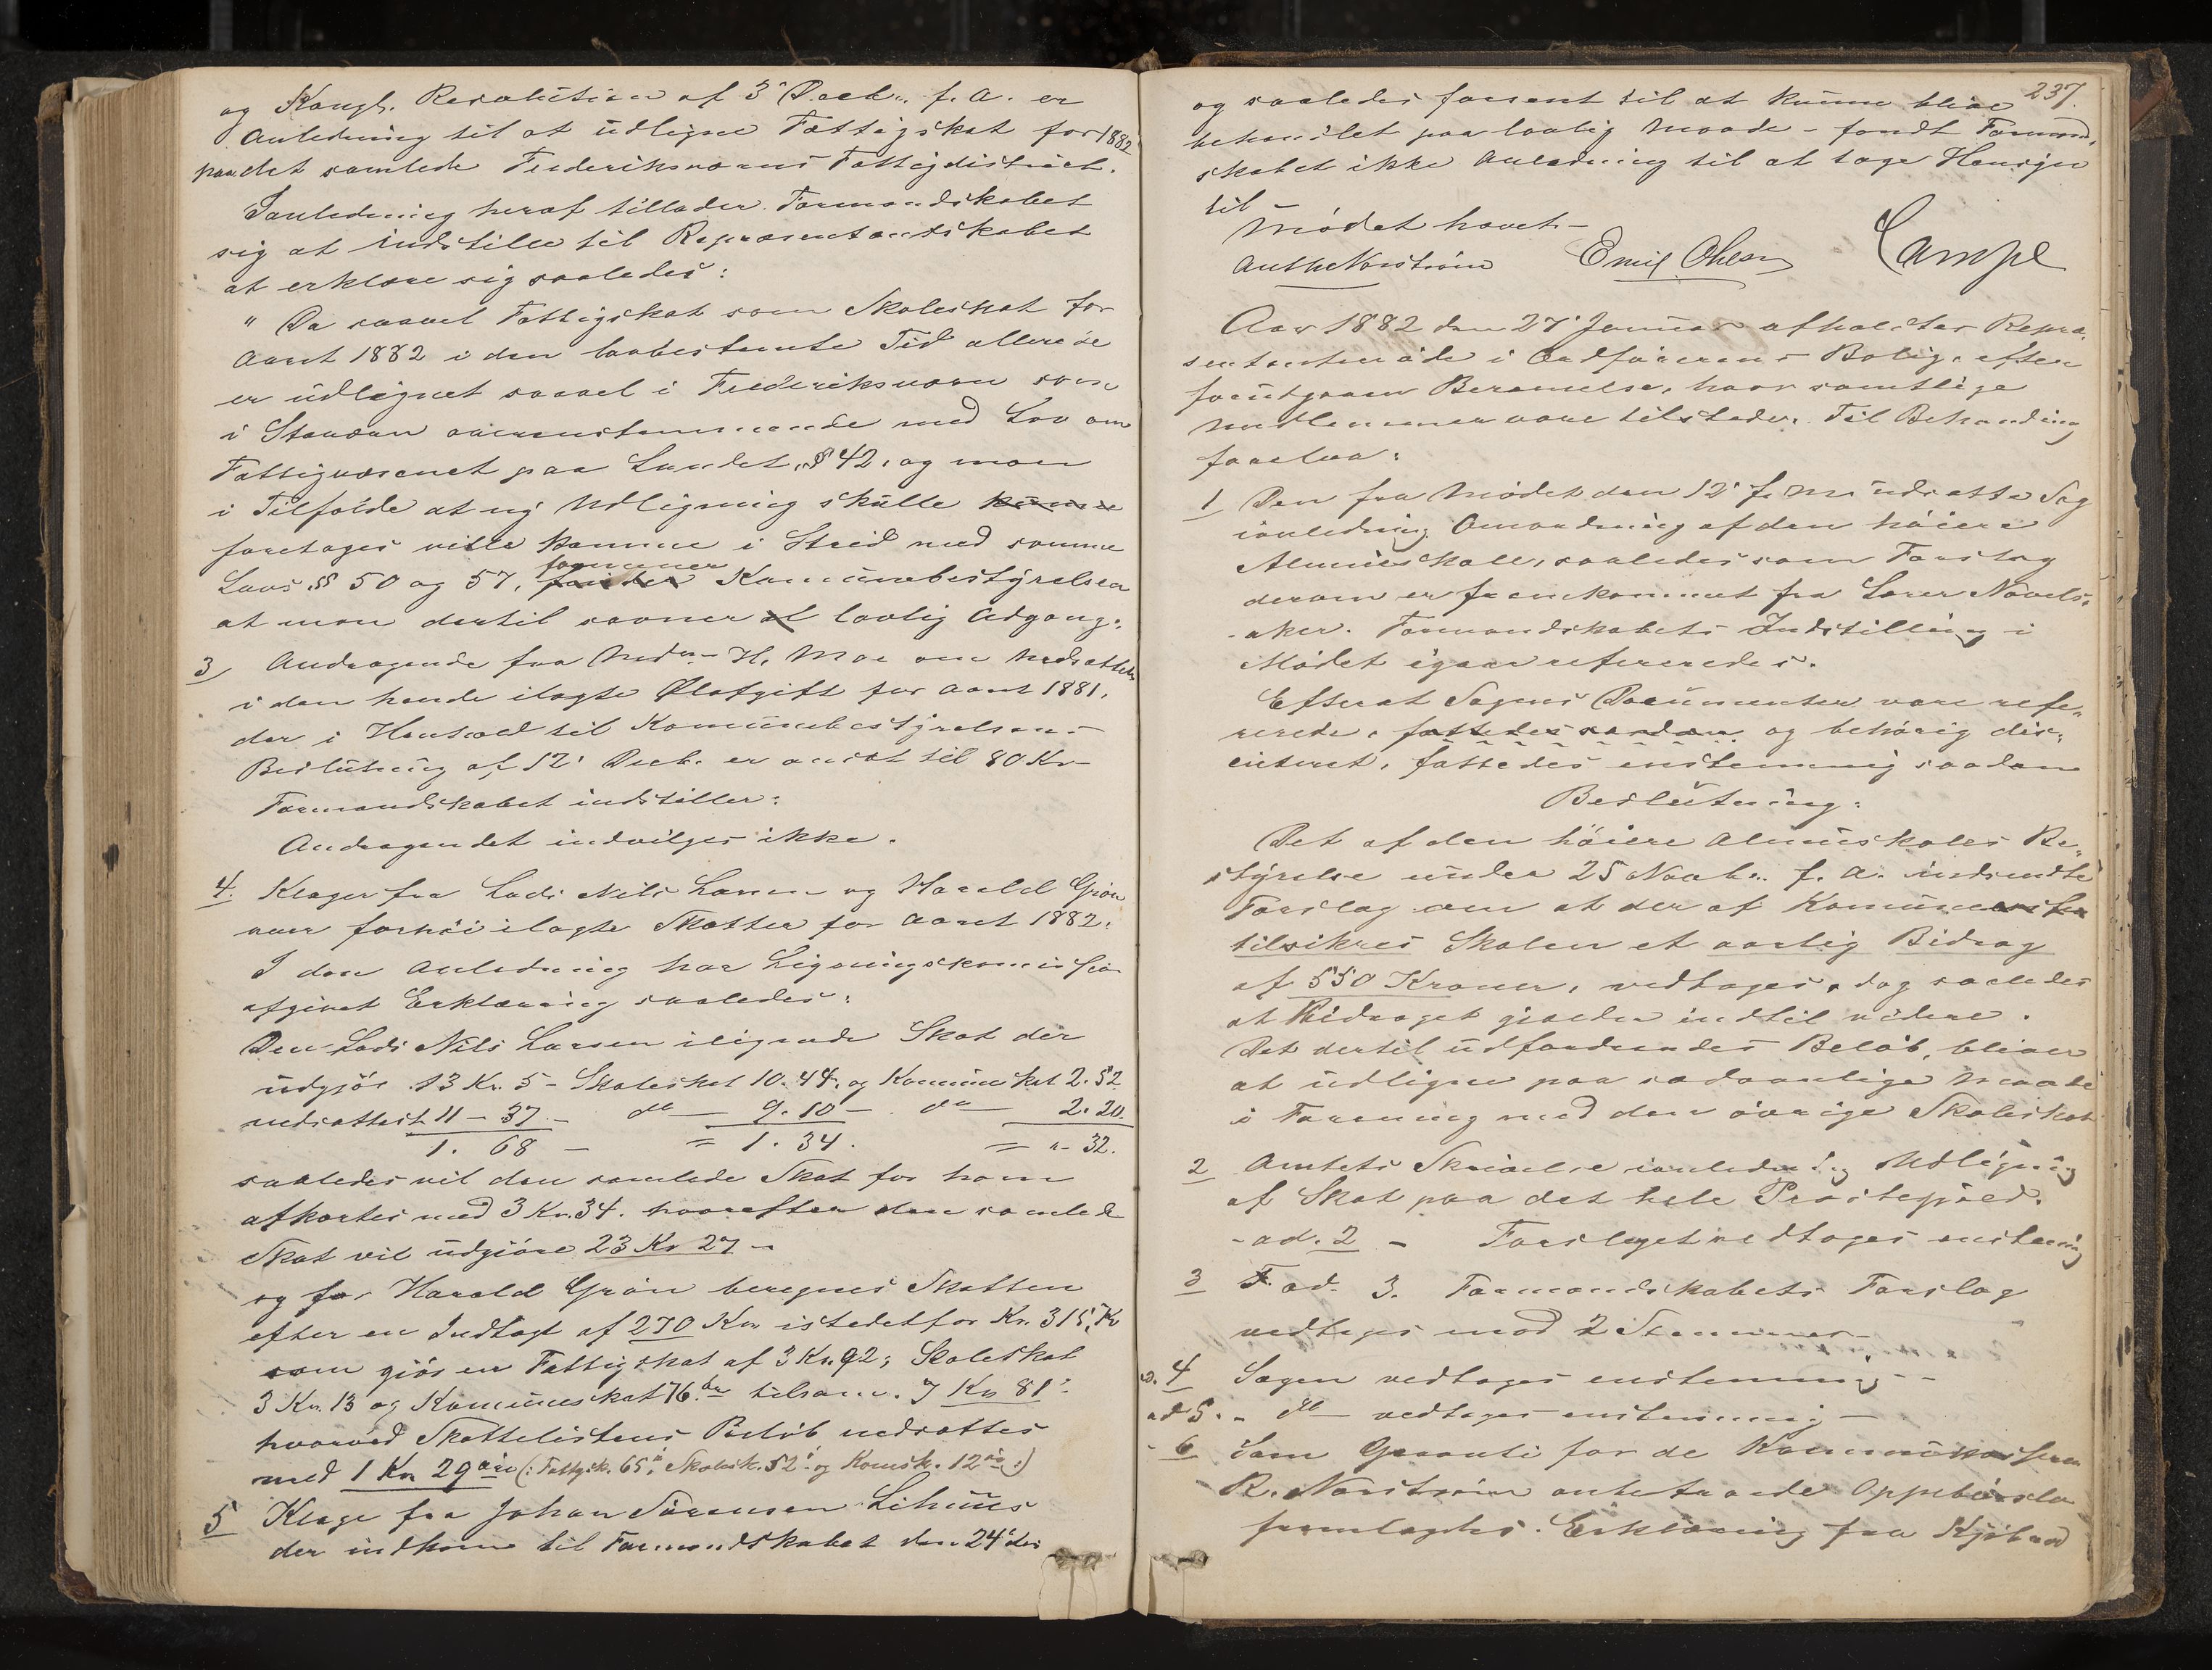 og Kongl. Resolution af 3' Decbr. f. A. er
Anledning til at udligne Fattigskat for 1882
paa det samlede Frederiksværns Fattigdistrict.
I anledning heraf tillader Formandskabet
sig at indstille til Repræsentandskabet
at erklære sig saaledes:
" Da saavel Fattigskat som Skoleskat for
Aaret 1882 i den lovbestemte Tid allerede
er udlignet saavel i Frederiksværn som
i Staværn overensstemmende med Lov om
Fattigvæsenet paa Landet, § 42, og man
i Tilfælde at ny Udligning skulle kunne
foretages ville komme i Strid med samme
Lovs §§ 50 og 57, formener Kommunebestyrelsen
at man dertil savner al lovlig Adgang.
3 Andragende fra Mad H. Moe om Nedsættelse
i den hende ilagte Ølafgift for Aaret 1881,
der i Henhold til Kommunebestyrelsens
Beslutning af 12' Decb. er ansat til 80 Kr -
Formandskabet indstiller:
Andragendet indvilges ikke.
4. Klager fra Lods Nils Larsen og Harald Grøn
over forhøi ilagte Skatter for Aaret 1882.
I den Anledning har Ligningskommission
afgivet Erklæring saaledes:
Den Lods Nils Larsen ilignede Skat der
udgjør 13 Kr. 5 - Skoleskat 10.44. og Kommuneskat 2.52.
nedsættes t 11 - 37 - do - 9.10 - do - 2.20.
1. 68 - = 1.34. = " - 32.
saaledes vil den samlede Skat for ham
afkortes med 3 Kr. 34. hvorefter den samlede
Skat vil udgjøre 23 Kr 27 -
og for Harald Grøn beregnes Skatten
efter en Indtægt af 270 Kr istedetfor Kr. 315, Kr
som gjør en Fattigskat af 3 Kr. 92; Skoleskat
3 Kr. 13 og Kommuneskat 76 øre tilsam. 7 Kr 81
hvorved Skattelistens Beløb nedsættes
med 1 Kr 29 øre (: Fattigsk. 65, Skolesk. 52 og Komsk. 12 :)
5 Klage fra Johan Sørensen Lihuus
der indkom til Formandskabet den 24' ds
237.
og saaledes forsent til at kunne blive
behandlet paa lovlig Maade - fandt Formand-
skabet ikke Anledning til at tage Hensyn
til
Mødet hævet -
Emil Olsen Campe
Aar 1882 den 27' Januar afholdtes Repræ-
sentantmøde i Ordførerens Bolig, efter
forudgaaen Berammelse, hvor samtlige
Medlemmer vare tilstede. Til Behandling
forelaa:
1 Den fra Mødet den 12' f. M. udsatte Sag
ianledning Omordning af den høiere
Almueskole, saaledes som Forslag
derom er fremkommet fra Lærer Nævels-
-aker. Formandskabets Indstilling i
Mødet igaar refereredes.
Efterat Sagens Documenter vare refe-
rerede, fattedes saadan og behørig dis-
cuteret, fattedes enstemmig saadan
Beslutning:
Det af den høiere Almueskoles Be-
styrelse under 25 Novbr. f. A. indsendte
Forslag om at der af Kommunen
tilsikres Skolen et aarlig Bidrag
af 550 Kroner, vedtages, dog saaledes
at Bidraget gjælder indtil videre.
Det dertil udfordrendes Beløb, bliver
at udligne paa sædvanlige Maade
i Forening med den øvrige Skoleskat
2 Amtets Skrivelse ianledning Udligning
af Skat paa det hele Præstegjæld.
- ad. 2 - Forslaget vedtages enstemmig
3 ad. 3. Formandskabets Forslag
vedtages mod 2 Stemmer -
ad. 4 Sagen vedtages enstemmig - -
ad 5. - do - vedtages enstemmig -
- 6 Som Garanti for de Kommunekasserer
R. Norstrøm anbetroede Oppebørsler
fremlagdes Erklæring fra Kjøbmd